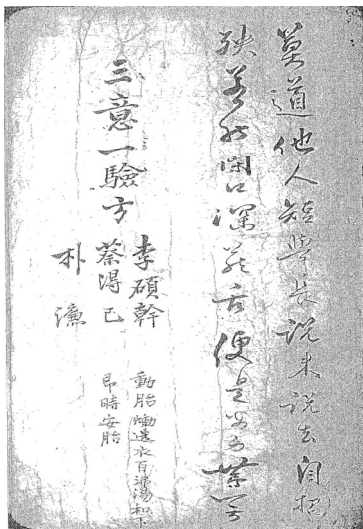 莫道他人短與長說來說去自招
殃若能閉口深藏舌便是安身第一
三意一驗方
李碩幹
蔡得已
朴濂
動胎 連水百沸湯和下
即時安胎